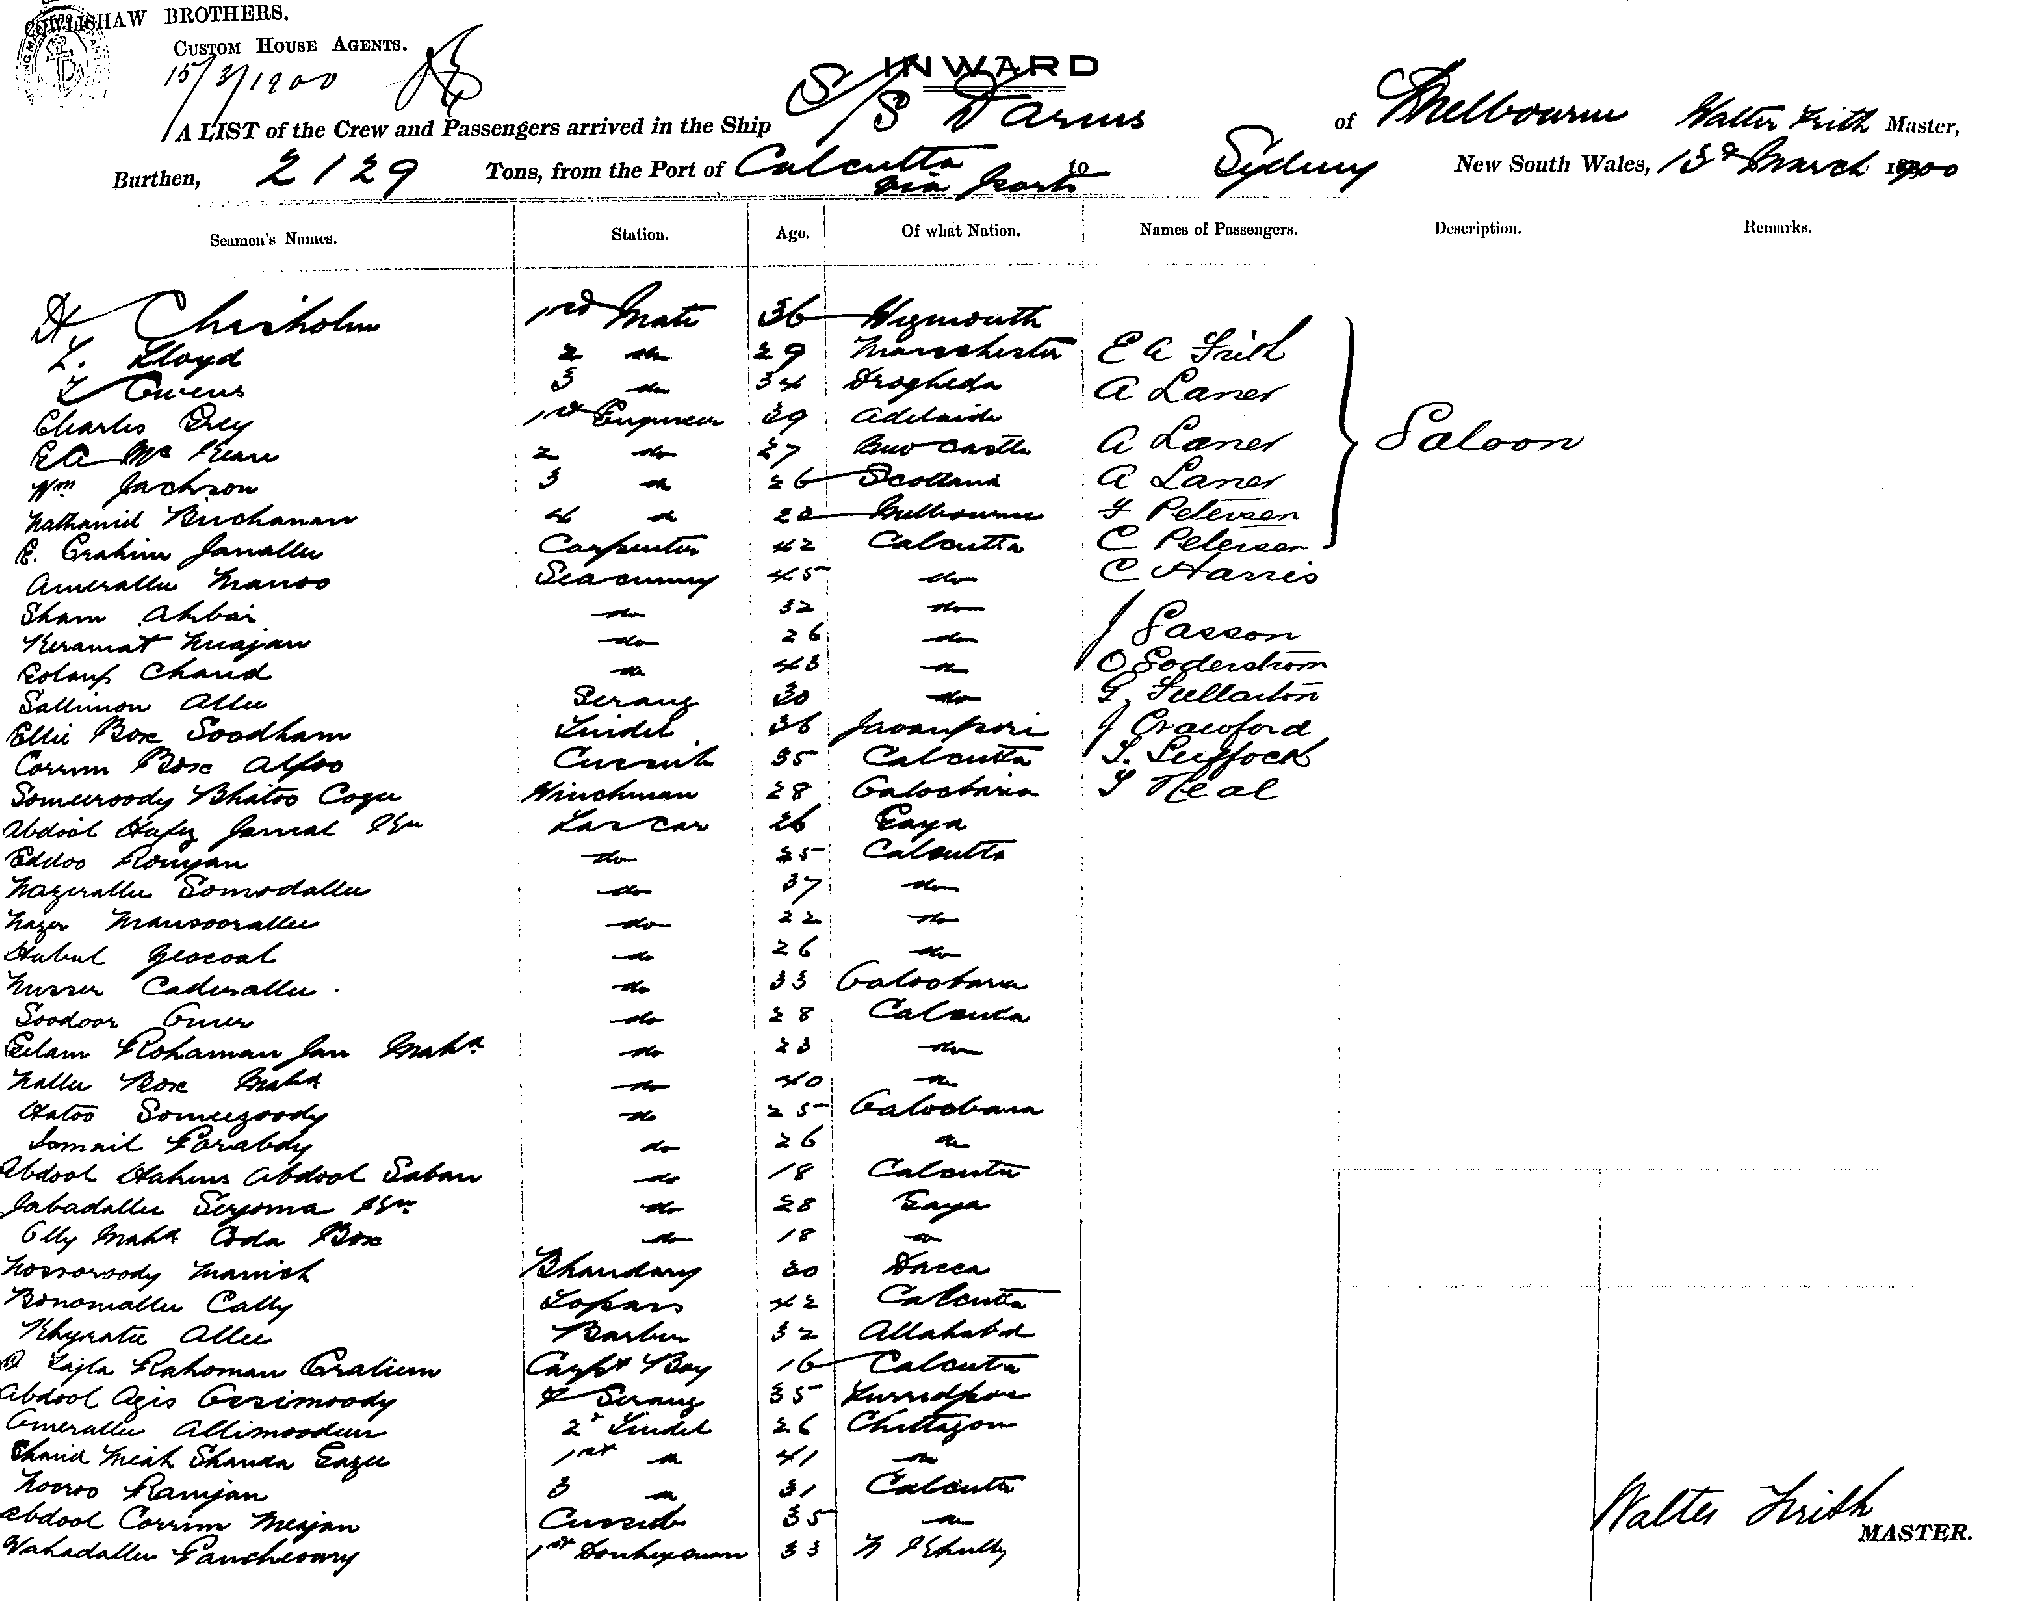 COWLISHAW BROTHERS.
CUSTOM HOUSE AGENTS.
15/3/1900
INWARD
A LIST of the Crew and Passengers arrived in the Ship S/S Darius of Melbourne Walter Frith Master,
Burthen, 2129 Tons, from the Port of Calcutta via Ports to Sydney New South Wales, 13th March 1900
Seamen's Names. Station. Age. Of what Nation. Names of Passengers. Description. Remarks.
H Chisholm 1st Mate 36 Weymouth
L. Lloyd 2 do 29 Manchester E A Frith
Owens 3 do 34 Drogheda A Laner
Charles Grey 1st Engineer 39 Adelaide
Mc 2 do 27 New Castle A Laner Saloon
Wm Jackson 3 do 26 Scotland A Laner
Nathaniel Buchanan 4 do Melbourne F Petersen
Carpenter 42 Calcutta C Petersen
Amerallee Seacunny 45 do C Harris
Sham Akbar do 32 do
Keramat do 26 do J Sasson
Chand do 43 do O Soderstrom
Sallimon Allee Serang 30 do G. Fullarton
Ellie Box Soodham Tindel 36 J Crawford
Corrim Box 35 Calcutta S. Suffock
Someeroody Bhatoo Winchman 28 Galoobaria S Neal
Abdool Hafiz Jamal Lascar 26 Gaya
Eddoo Romjan do 25 Calcutta
Nazerallee Somodallee do 37 do
Nazer Mansoorallee do 22 do
do 26 do
Caderallee do 33 Galoobaria
Soodoor Omer do 28 Calcutta
Rohaman Jan Mahd do 23 do
Nallee Box Mahd do 40 do
Hatoo Someezoody do 25 Galoobaria
Ismail Forabdy do 26 do
Abdool Hakim Abdool Saban do 18 Calcutta
Jabadallee do 28 Gaya
Olly Mahd Coda Box do 18 do
Manick Bhandary 30 Dacca
Bonomallee Cally Topass 42 Calcutta
Khyratee Allee Barber 32 Allahabd
Rahoman Carpt Boy 16 Calcutta
Abdool Azis Serang 35
Omerallee Allimoodeen 2d Tindel 26 Chittagon
Meah Shanda Gazee 1st do 41 do
Nooroo Ramjan 3 do 31 Calcutta
Abdool Corrim Meajan 35 do
Wahadallee 1st Donkeyman 33
Walter Frith
MASTER.